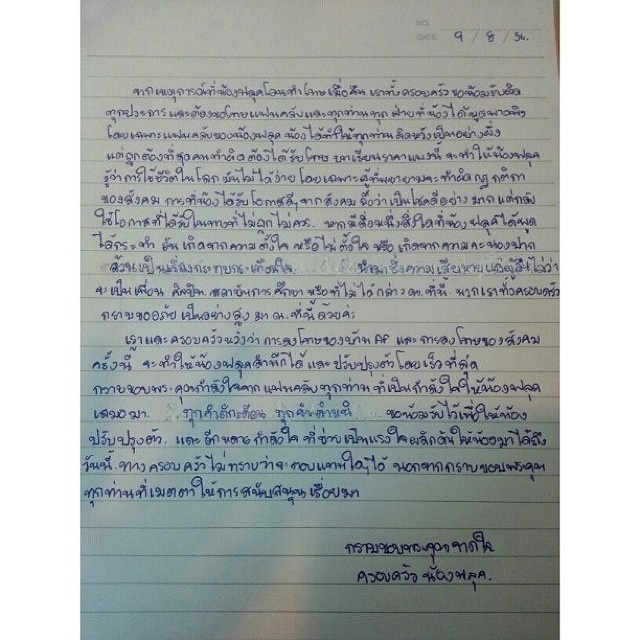 NO.
DATE 9 / 8 / 54.
จากเหตุการณ์ที่น้องฟลุคโดนทำโทษเมื่อคืน เราทั้งครอบครัวขอน้อมรับผิด
ทุกประการ และต้องขอโทษแฟนคลับและทุกท่านทุกฝ่ายที่น้องได้พูดพาดพิง
โดยเฉพาะแฟนคลับของน้องฟลุค น้องได้ทำให้ทุกท่านผิดหวังเป็นอย่างยิ่ง
แต่ถูกต้องที่สุดคนทำผิดต้องได้รับโทษ บทเรียนราคาแพงนี้ จะทำให้น้องฟลุค
รู้ว่า การใช้ชีวิตในโลกมันไม่ได้ง่าย โดยเฉพาะผู้ที่พยายามจะทำผิดกฎกติกา
ของสังคม การที่น้องได้รับโอกาสดีๆจากสังคม ถือว่าเป็นโชคดีอย่างมาก แต่กลับ
ใช้โอกาสที่ได้รับในทางที่ไม่ถูกไม่ควร. หากมีสิ่งหนึ่งสิ่งใดที่น้องฟลุคได้พูด
ได้กระทำ อันเกิดจากความตั้งใจ หรือไม่ตั้งใจ หรือ เกิดจากความคะนองปาก
ล้วนเป็นเรื่องกระทบกระเทือนใจ นำมาซึ่งความเสียหายแก่ผู้อื่น ไม่ว่า
จะเป็นเพื่อน ศิลปิน สถาบันการศึกษา หรือที่ไม่ได้กล่าว ณ.ที่นี้. พวกเราทั้งครอบครัว
กราบขออภัยเป็นอย่างสูง มา ณ. ที่นี้ ด้วยค่ะ
เราและครอบครัวหวังว่า การลงโทษของบ้าน AF และ การลงโทษของสังคม
ครั้งนี้ จะทำให้น้องฟลุคสำนึกได้ และ ปรับปรุงตัวโดยเร็วที่สุด
กราบขอบพระคุณกำลังใจจาก แฟนคลับทุกท่าน ที่เป็นกำลังใจให้น้องฟลุค
เสมอมา. ทุกคำตักเตือน ทุกคำตำหนิ ขอน้อมรับไว้เพื่อให้น้อง
ปรับปรุงตัว. และ อีกหลายกำลังใจ ที่ช่วยเป็นแรงใจผลักดันให้น้องมาได้ถึง
วันนี้. ทางครอบครัวไม่ทราบว่าจะตอบแทนใดๆได้ นอกจากกราบขอบพระคุณ
ทุกท่านที่เมตตาให้การสนับสนุนเรื่อยมา
กราบขอบพระคุณจากใจ
ครอบครัว น้องฟลุค.